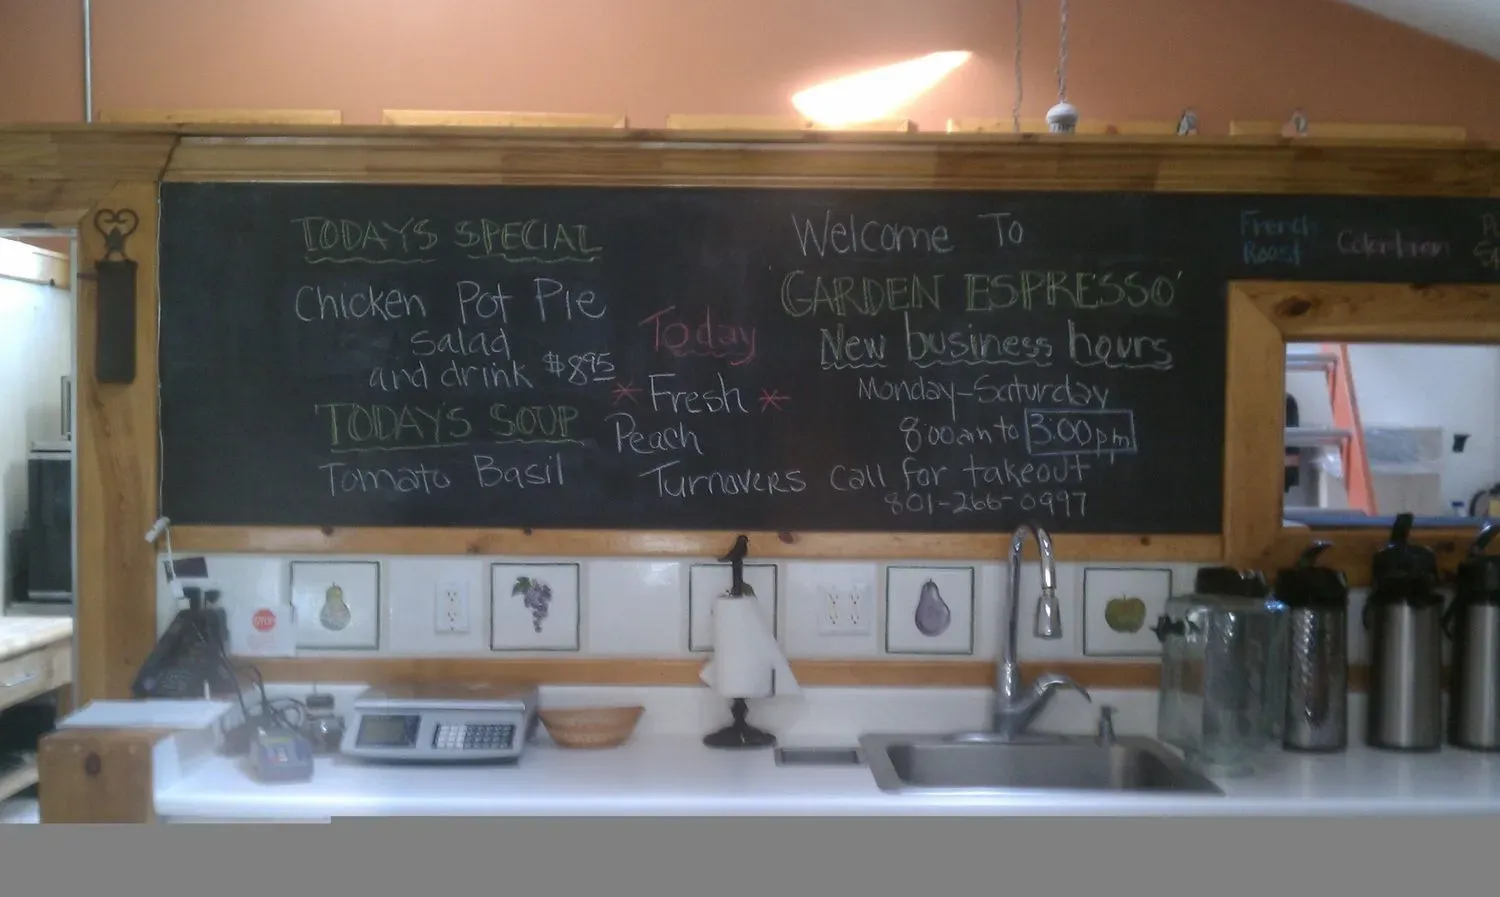 TODAY'S SPECIAL
Chicken Pot Pie
salad
and drink $8.95
TODAY'S SOUP
Tomato Basil
Today
* Fresh *
Peach
Turnovers
Welcome To
'GARDEN ESPRESSO'
New business hours
Monday-Saturday
8:00am to 3:00pm
call for takeout
801-266-0997
French
Roast
Colombian
STOP